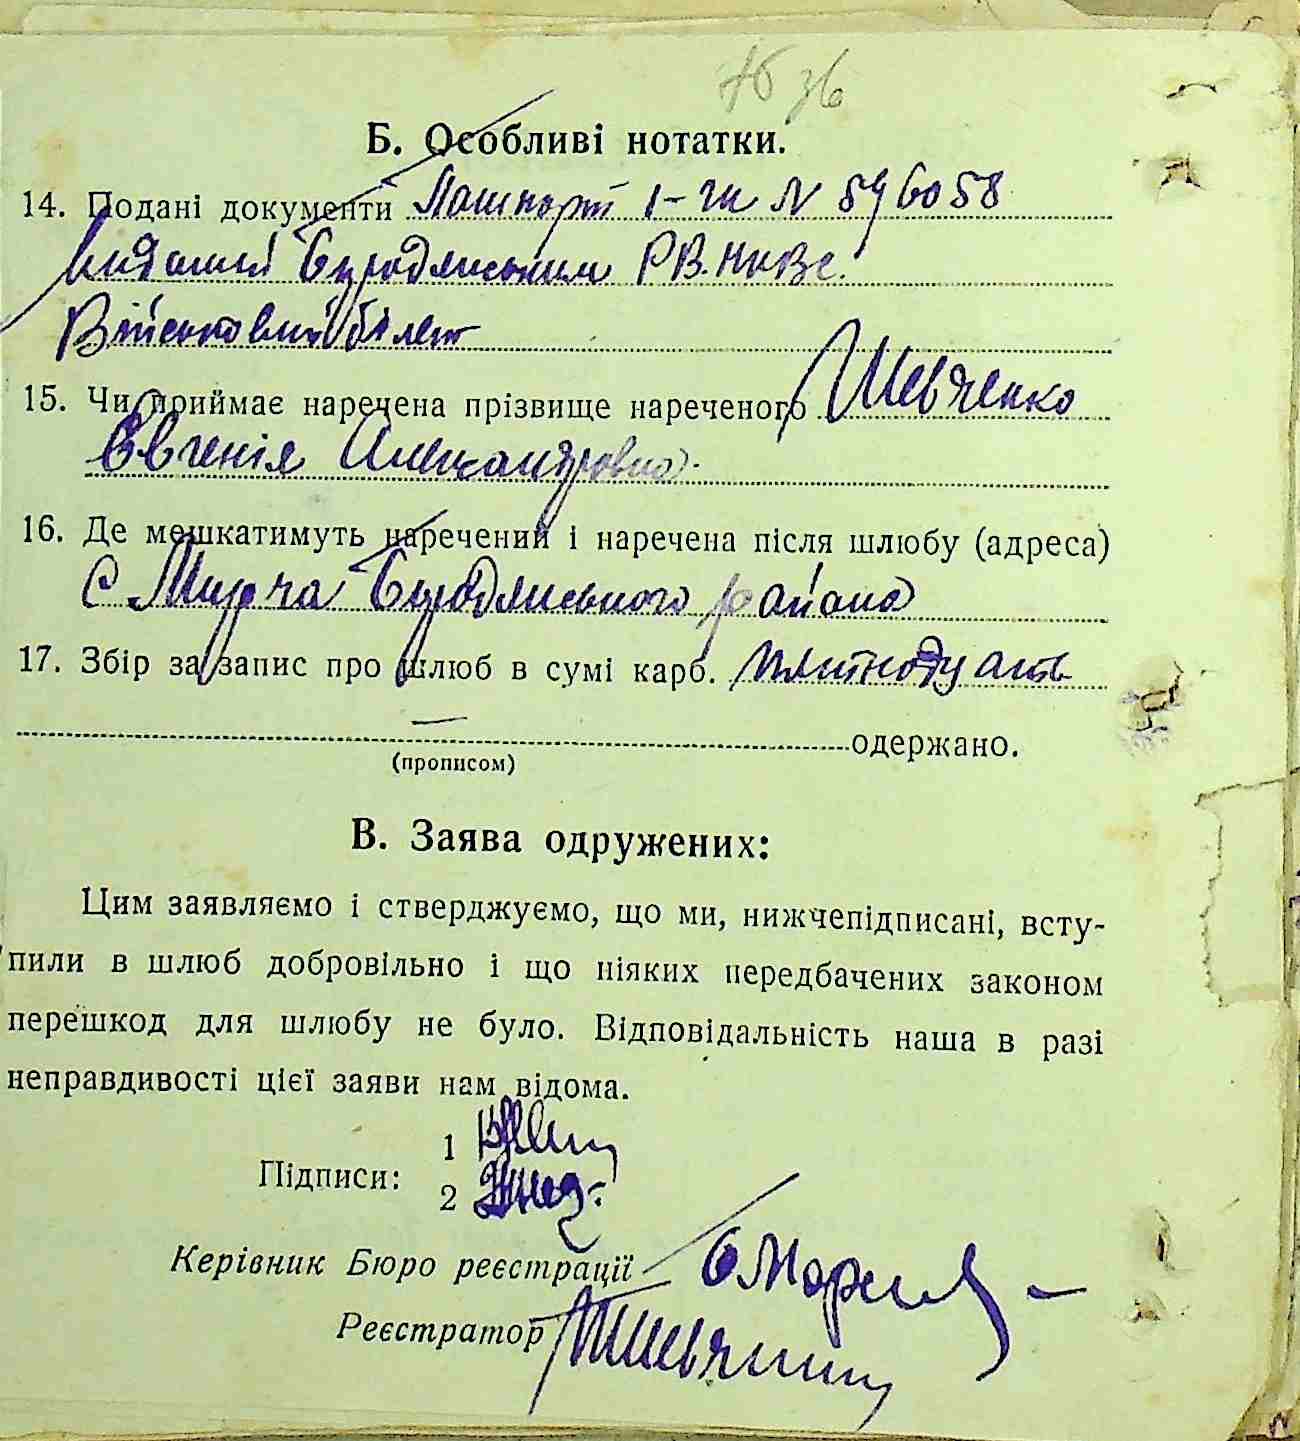 Б. Особливі нотатки.
14. Подані документи Пашпорт 1-ЧК N 596058
Виданий Бородянським РВ.НКВС.
Військовий білет
15. Чи приймає наречена прізвище нареченого Шевченко
Євгенія Александровна.
16. Де мешкатимуть наречений і наречена після шлюбу (адреса)
С Мирча Бородянського района
17. Збір за запис про шлюб в сумі карб. пятнодцять
— одержано.
(прописом)
В. Заява одружених:
Цим заявляємо і стверджуємо, що ми, нижчепідписані, всту-
пили в шлюб добровільно і що ніяких передбачених законом
перешкод для шлюбу не було. Відповідальність наша в разі
неправдивості цієї заяви нам відома.
Підписи:
1
2
Керівник Бюро реєстрації
Реєстратор